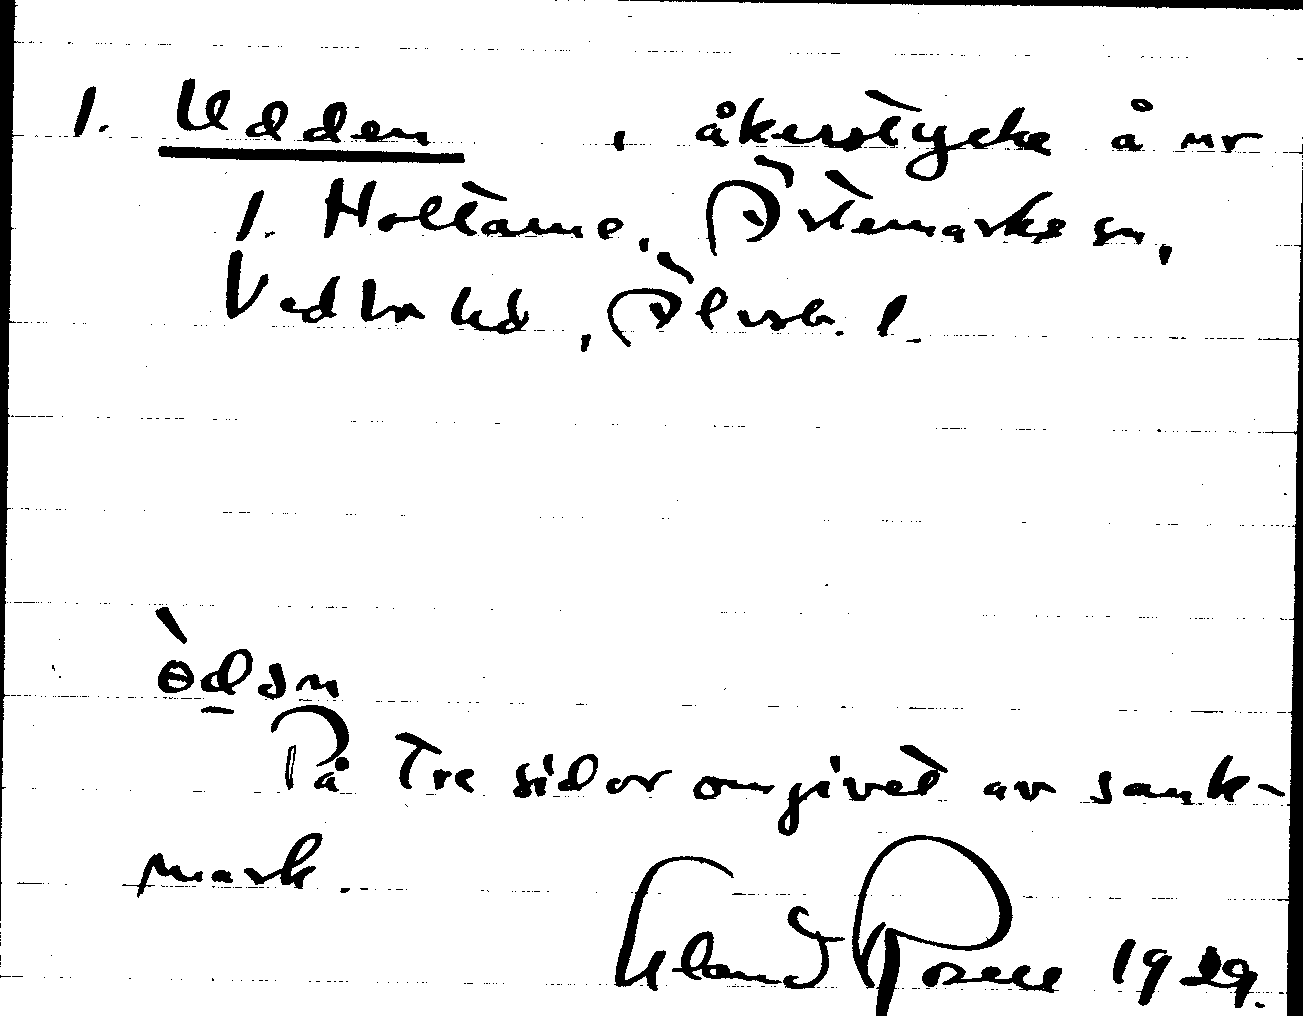 1. Udden , åkerstycke å nr
1. Holtane, Östemarke sn,
Vedbo hd, Älvsb. l.
ödan
På tre sidor omgivet av sank-
mark.
Erland Rosell 1929.